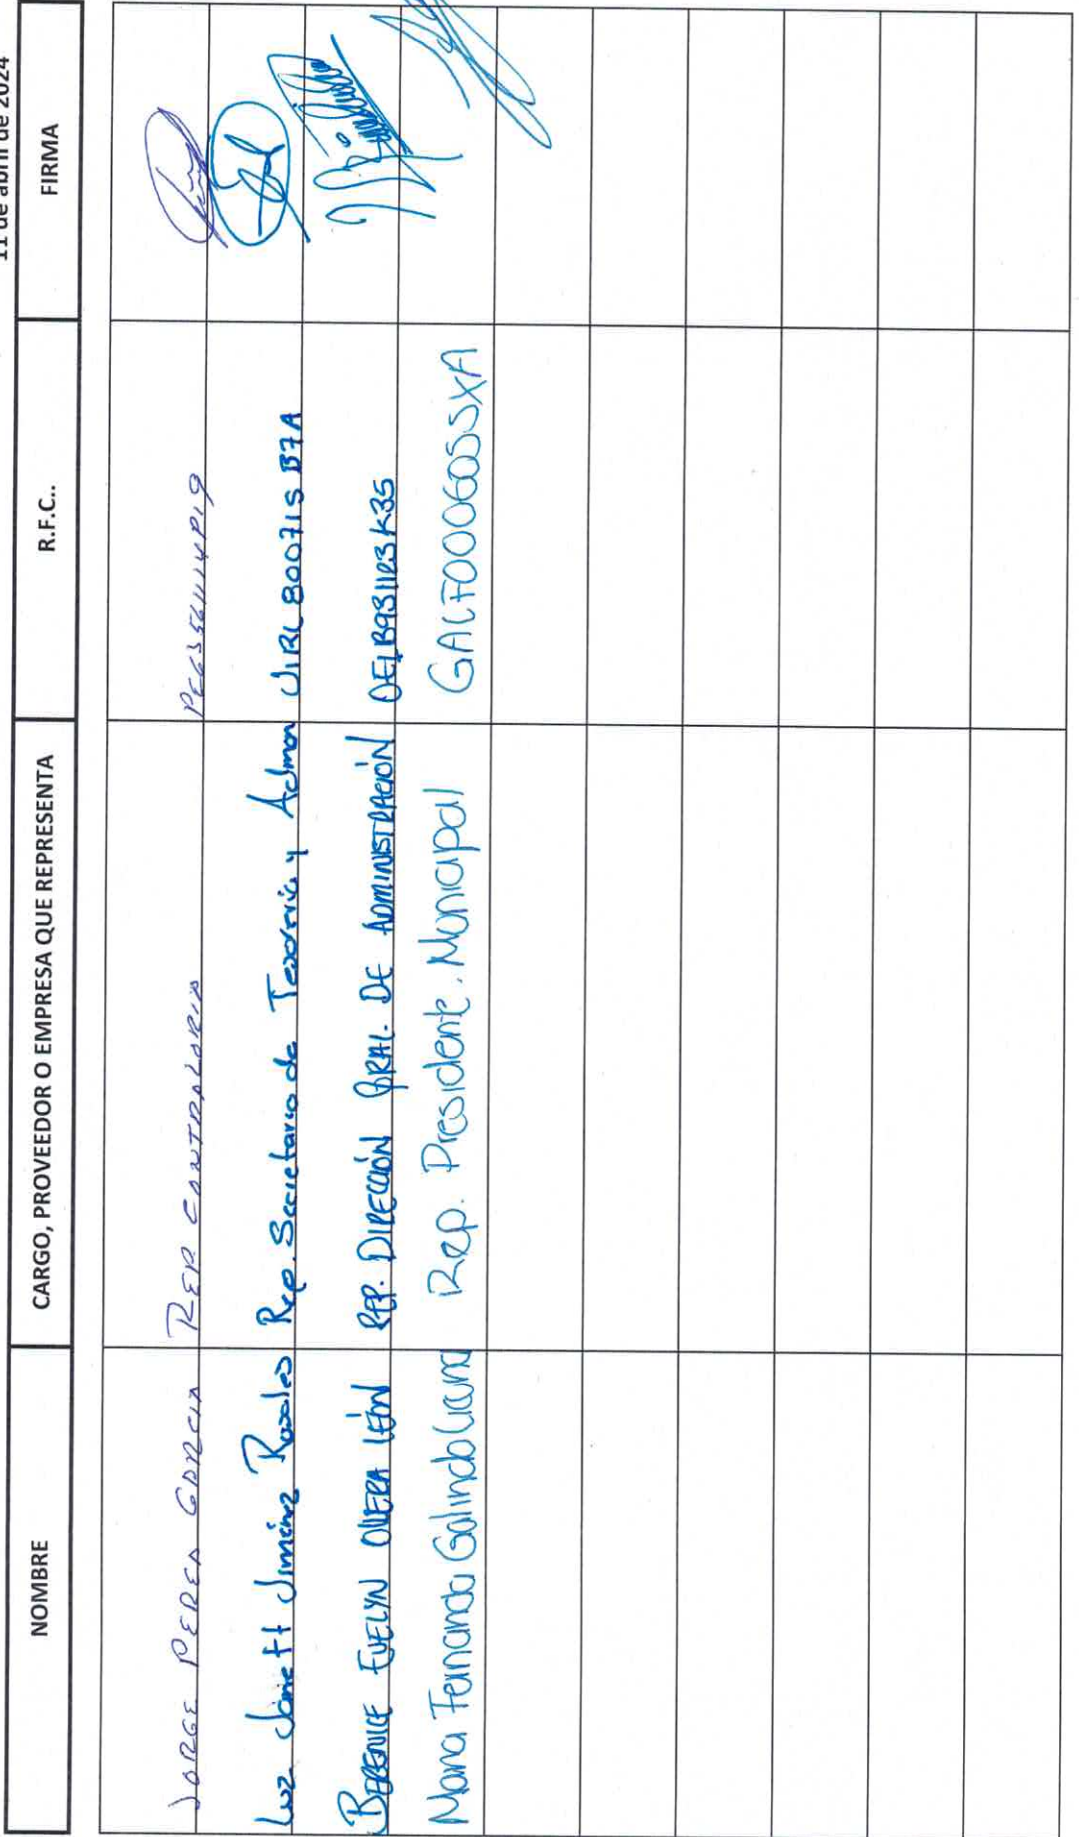 11 de abril de 2024
NOMBRE CARGO, PROVEEDOR O EMPRESA QUE REPRESENTA R.F.C.. FIRMA
JORGE PEREA GARCIA REP CONTRALORIA
Luz Janett Jiménez Rosales Rep. Secretario de Tesorería y Admon JIRL800715B7A
BERENICE EVELYN OLVERA LEÓN REP. DIRECCIÓN GRAL. DE ADMINISTRACIÓN OELB931123K35
Maria Fernanda Galindo Liana Rep. Presidente Municipal GALF000605SXA